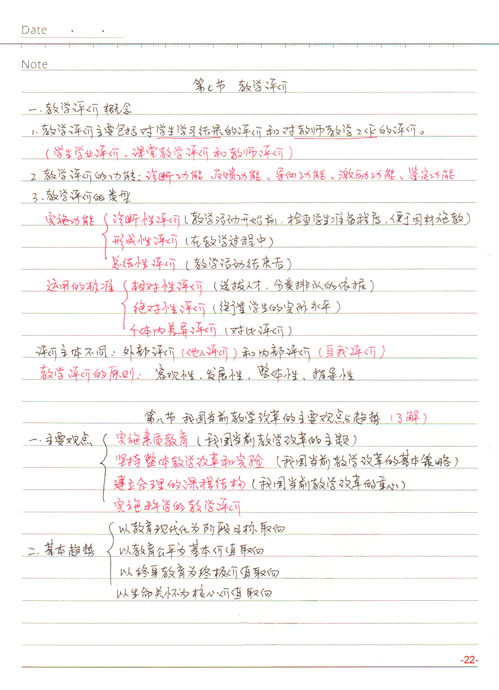 Date . .
Note
第七节 教学评价
一.教学评价概念
1.教学评价主要包括对学生学习结果的评价和对教师教学工作的评价。
(学生学业评价、课堂教学评价和教师评价)
2.教学评价的功能:诊断功能、反馈功能、导向功能、激励功能、鉴定功能
3.教学评价的类型
实施功能 诊断性评价(教学活动开始前,检查学生准备程度,便于因材施教)
形成性评价(在教学过程中)
总结性评价(教学活动结束后)
运用的标准 相对性评价(选拔人才,分类排队的依据)
绝对性评价(衡量学生的实际水平)
个体内差异评价(对比评价)
评价主体不同:外部评价(他人评价)和内部评价(自我评价)
教学评价的原则:客观性、发展性、整体性、指导性
第八节 我国当前教学改革的主要观点与趋势(了解)
一.主要观点 实施素质教育(我国当前教学改革的主题)
坚持整体教学改革和实验(我国当前教学改革的基本策略)
建立合理的课程结构(我国当前教学改革的重心)
实施科学的教学评价
以教育现代化为阶段目标取向
二.基本趋势 以教育公平为基本价值取向
以终身教育为终极价值取向
以生命关怀为核心价值取向
-22-